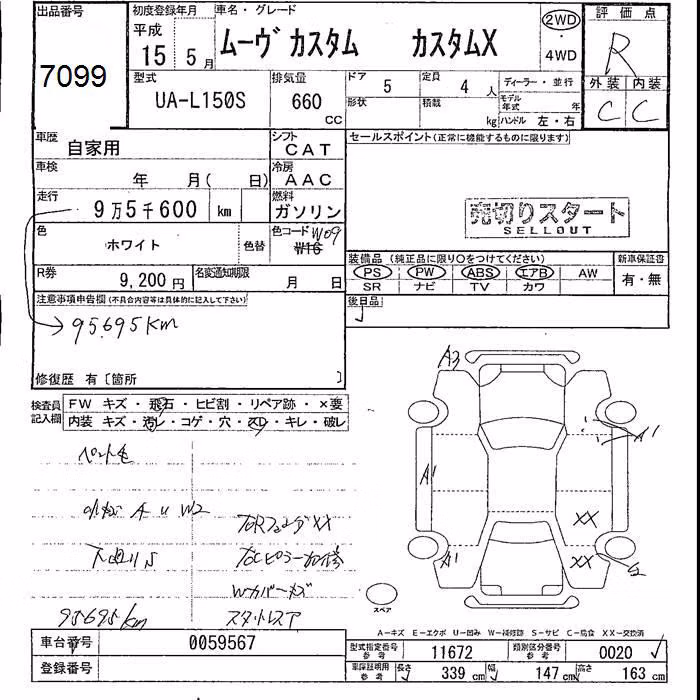 出品番号
7099
初度登録年月
平成
15 5月
車名・グレード
ムーヴ カスタム カスタムX
2WD
・
4WD
評価点
R
外装 内装
C C
型式
UA-L150S
排気量
660
cc
ドア 5
定員 4 人
形状
積載
kg
ディーラー・並行
モデル年式 年
ハンドル 左・右
車歴 自家用
シフト CAT
車検 年 月( 日)
冷房 AAC
走行 9万5千600 km
燃料 ガソリン
色 ホワイト 色替
色コード W09
W16
R券 9,200円
名変通知期限 月 日
セールスポイント(正常に機能するものに限ります)
売切りスタート
SELLOUT
装備品 (純正品に限り○をつけてください)
PS PW ABS エアB AW
SR ナビ TV カワ
新車保証書
有・無
後日品
注意事項申告欄(不具合内容等は具体的に記入して下さい)
95695km
修復歴 有〔箇所 〕
検査員記入欄
FW キズ・飛石・ヒビ割・リペア跡・×要
内装 キズ・汚レ・コゲ・穴・スレ・キレ・破レ
ペット毛
A U W2
下廻りS
95695km
スタットレスア
A3
A1
A1
A1
XX
XX
スペア
A-キズ E-エクボ U-凹み W-補修跡 S-サビ C-腐食 XX-交換済
車台番号 0059567
登録番号
型式指定番号 参考 11672
類別区分番号 参考 0020
車庫証明用 参考 長さ 339 cm 幅 147 cm 高さ 163 cm